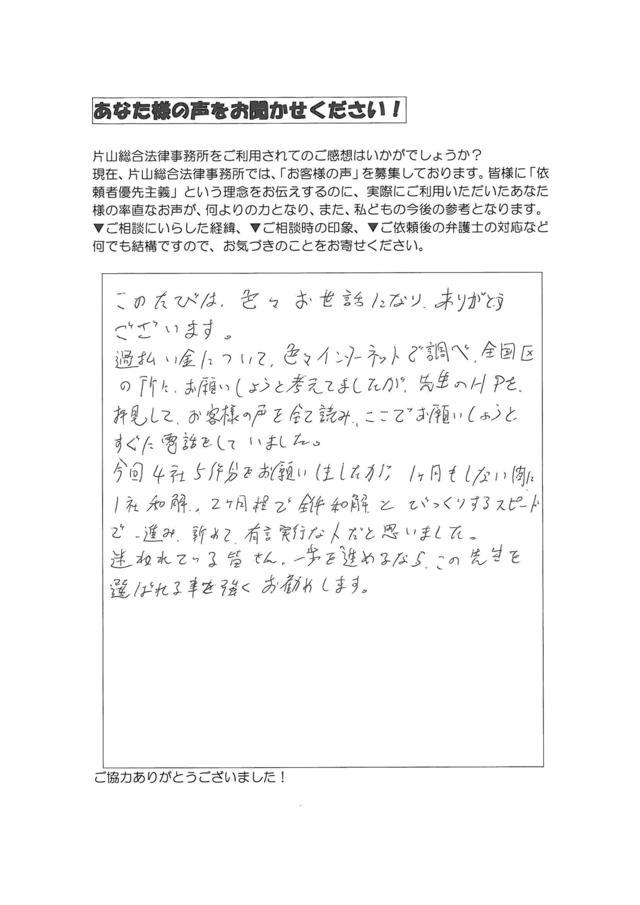 あなた様の声をお聞かせください！
片山総合法律事務所をご利用されてのご感想はいかがでしょうか？
現在、片山総合法律事務所では、「お客様の声」を募集しております。皆様に「依
頼者優先主義」という理念をお伝えするのに、実際にご利用いただいたあなた
様の率直なお声が、何よりの力となり、また、私どもの今後の参考となります。
▼ご相談にいらした経緯、▼ご相談時の印象、▼ご依頼後の弁護士の対応など
何でも結構ですので、お気づきのことをお寄せください。
このたびは、色々お世話になり、ありがとう
ございます。
過払い金について、色々インターネットで調べ、全国区
の所に、お願いしようと考えてましたが、先生のHPを、
拝見して、お客様の声を全て読み、ここでお願いしようと
すぐに電話をしていました。
今回4社5件分をお願いしましたが、1ヶ月もしない間に
1社和解、2ヶ月程で全件和解とびっくりするスピード
で進み、改めて、有言実行な人だと思いました。
迷われている皆さん、一歩を進めるなら、この先生を
選ばれる事を強くお勧めします。
ご協力ありがとうございました！